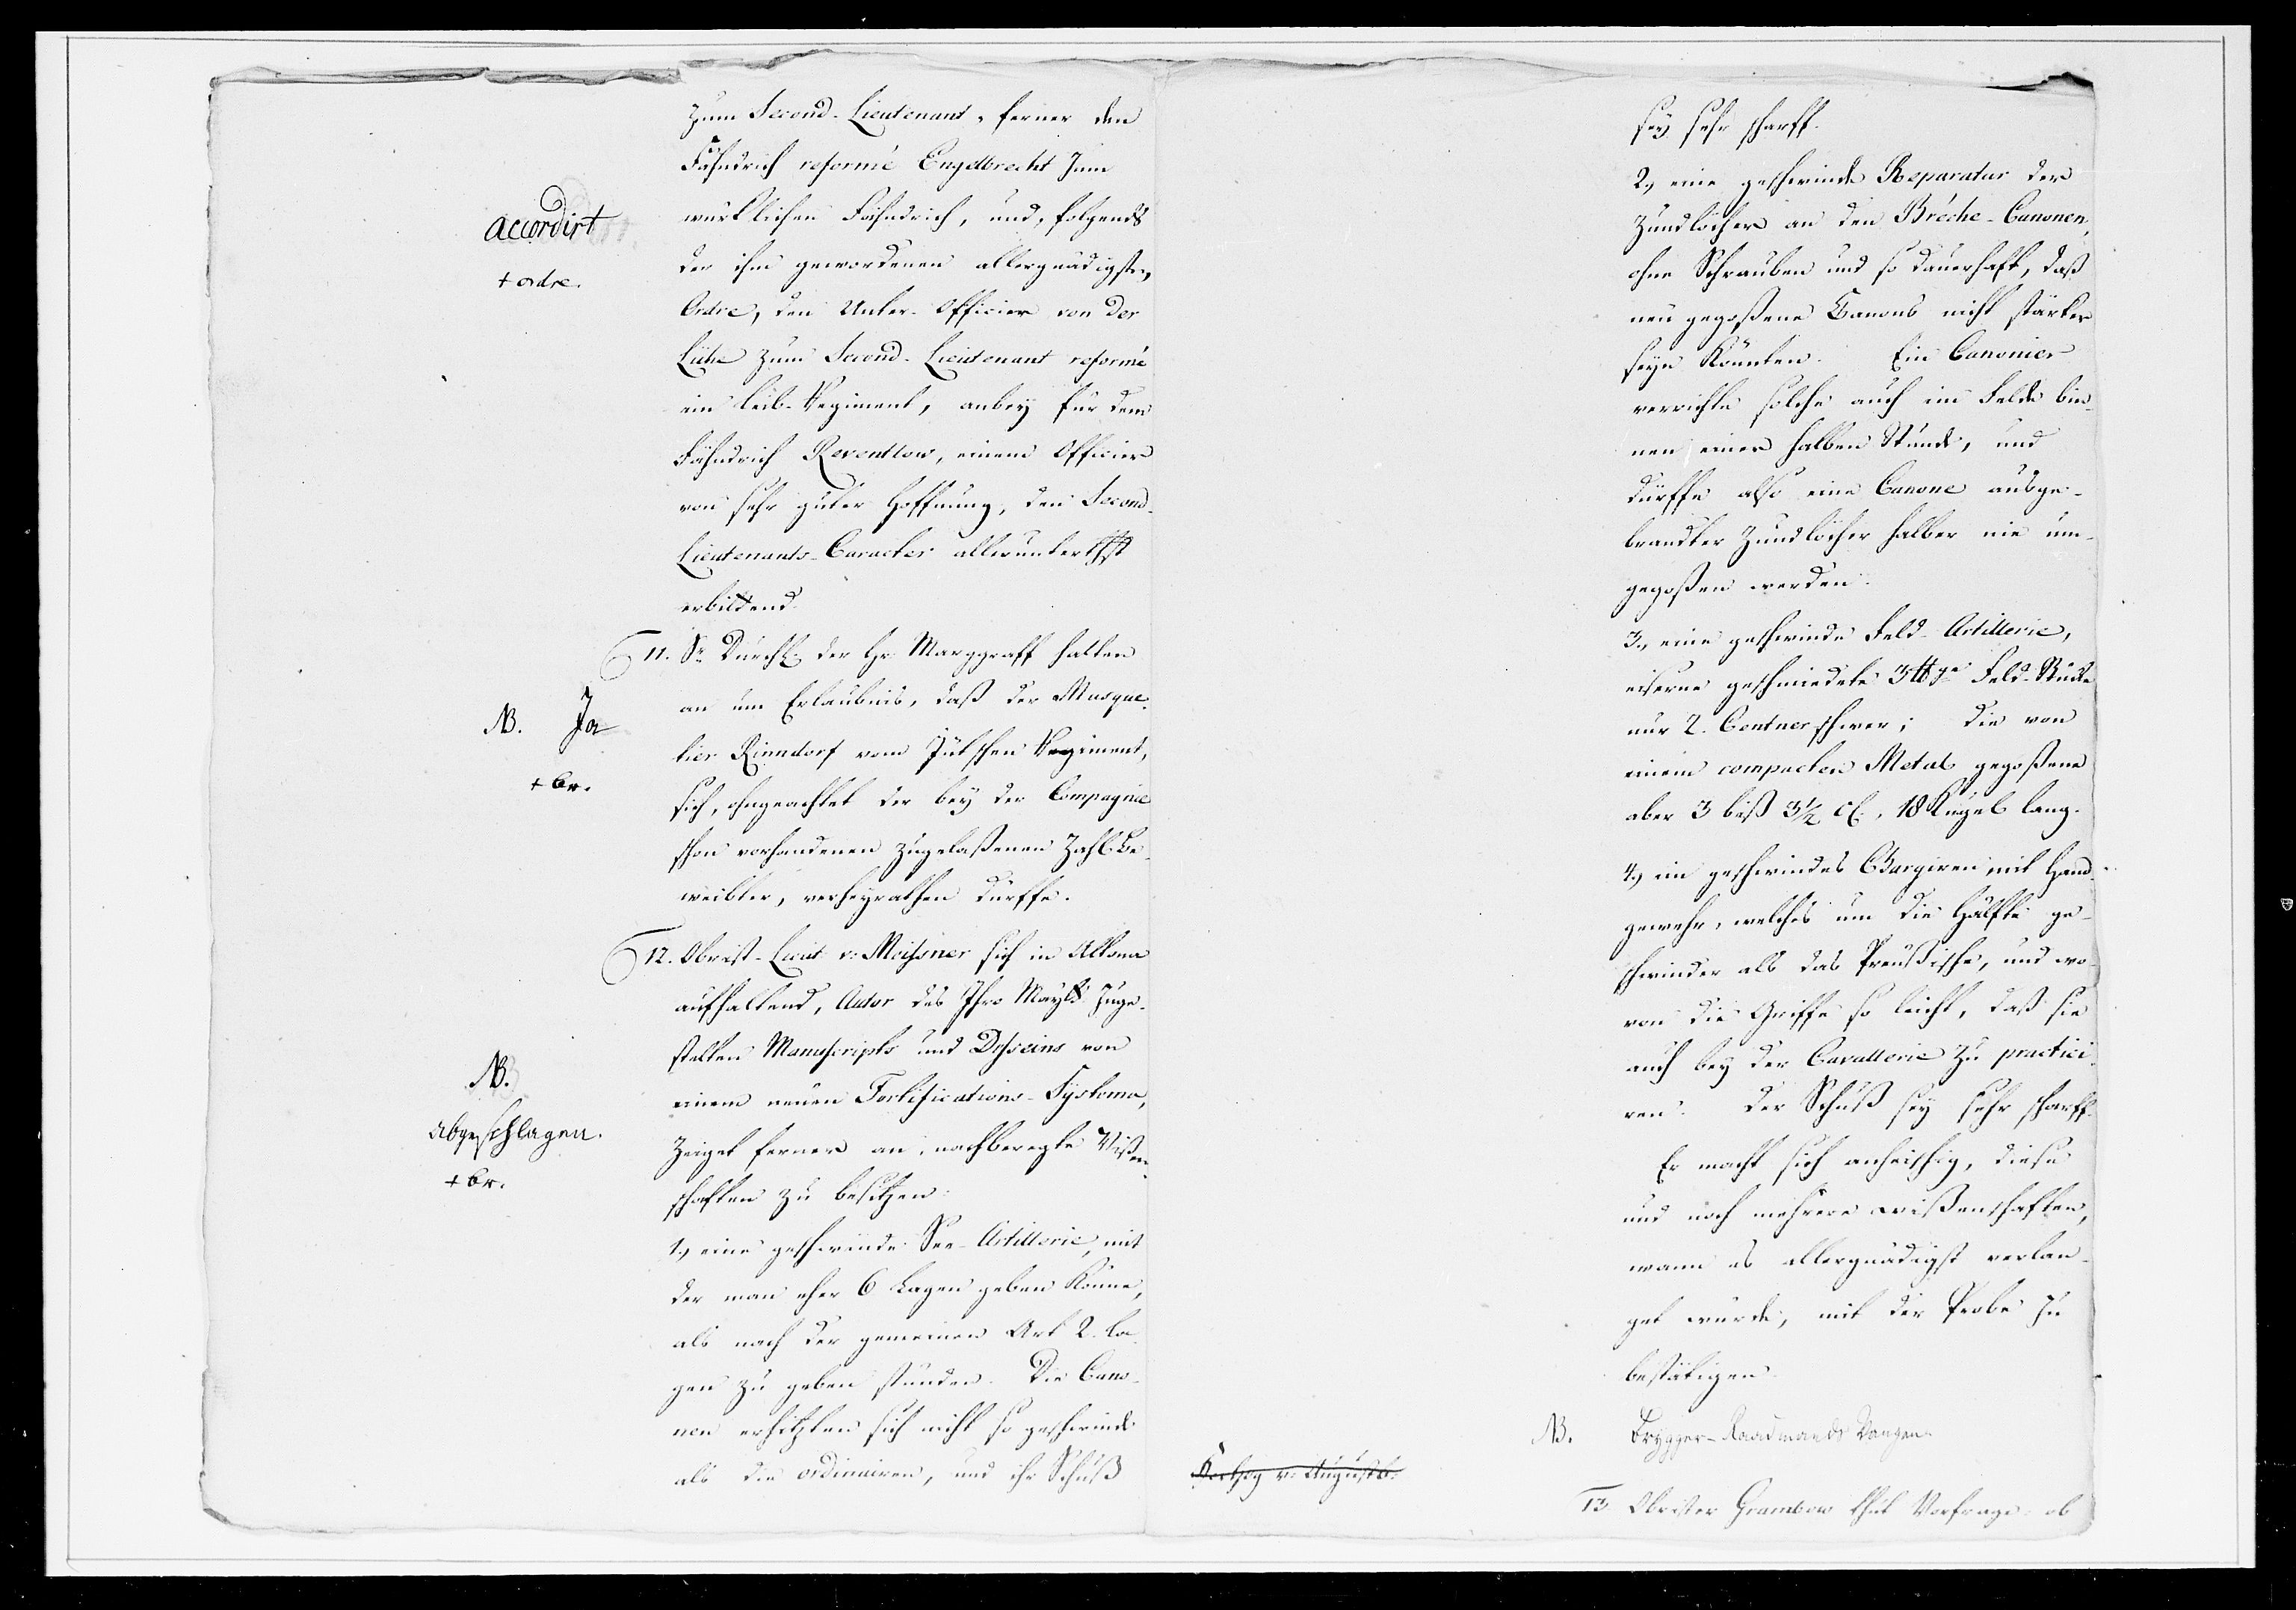 zum Second-Lieutenant, ferner den
Fähndrich reformé Engelbrecht zum
accordirt
würklichen Fähndrich, und, folgends
der ihm gewordenen allergnädigsten
+ ordre.
Ordre, den Unter-Officier von der
Lühe zum Second-Lieutenant reformé
im Leib-Regiment, anbey für dem
Fähndrich Reventlow, einem Officier
von sehr guter Hoffnung, den Second-
Lieutenants-Caracter allerunterthst
erbittend.
11. Sr Durchl. der Hr. Marggraff halten
an um Erlaubnis, daß der Musque-
NB. Ja
tier Rinndorf vom Jütschen Regiment,
+ br.
sich, ohngeachtet der bey der Compagnie
schon vorhandenen zugelaßenen Zahl Be-
weibter, verheyrathen dürffe.
12. Obrist-Lieut v. Meissner sich in Altona
aufhaltend, Autor des Ihro Maytt zuge-
stelten Manuscripts und Desseins von
NB.
einem neuen Fortifications-Systema,
abgeschlagen.
zeiget ferner an, nachberegte Wißen-
+ br.
schaften zu besitzen:
1.) eine geschwinde See-Artillerie, mit
der man eher 6 Lagen geben könne,
als nach der gemeinen Art 2. La-
gen zu geben stünden. Die Cano-
nen erhitzten sich nicht so geschwinde
als die ordinairen, und ihr Schuß
Hertzog v. Augustb.
sey sehr scharff.
2.) eine geschwinde Reparatur der
Zündlöcher an den Bréche-Canonen,
ohne Schrauben und so dauerhaft, daß
neu gegoßene Canons nicht stärker
seyn könnten. Ein Canonier
verrichte solche auch im Felde bin-
nen einer halben Stunde, und
dürffe also eine Canone ausge-
brandter Zündlöcher halber nie um-
gegoßen werden.
3.) eine geschwinde Feld-Artillerie,
eiserne geschmiedete 3 ℔ge Feld-Stücke
nur 2. Centner schwer; die von
einem compacten Metal gegoßene
aber 3 biß 3½ C., 18 Kugel lang.
4.) ein geschwindes Chargiren mit Hand-
gewehr, welches um die Hälfte ge-
schwinder als das Preußische, und wo-
von die Griffe so leicht, daß sie
auch bey der Cavallerie zu practici-
ren. Der Schuß sey sehr scharff.
Er macht sich anheischig, diese
und noch mehrere wißenschaften,
wann es allergnädigst verlan-
get würde, mit der Probe zu
bestätigen.
NB. Brygger-Raadmands
13. Obrister Grambow thut Vorfrage: ob